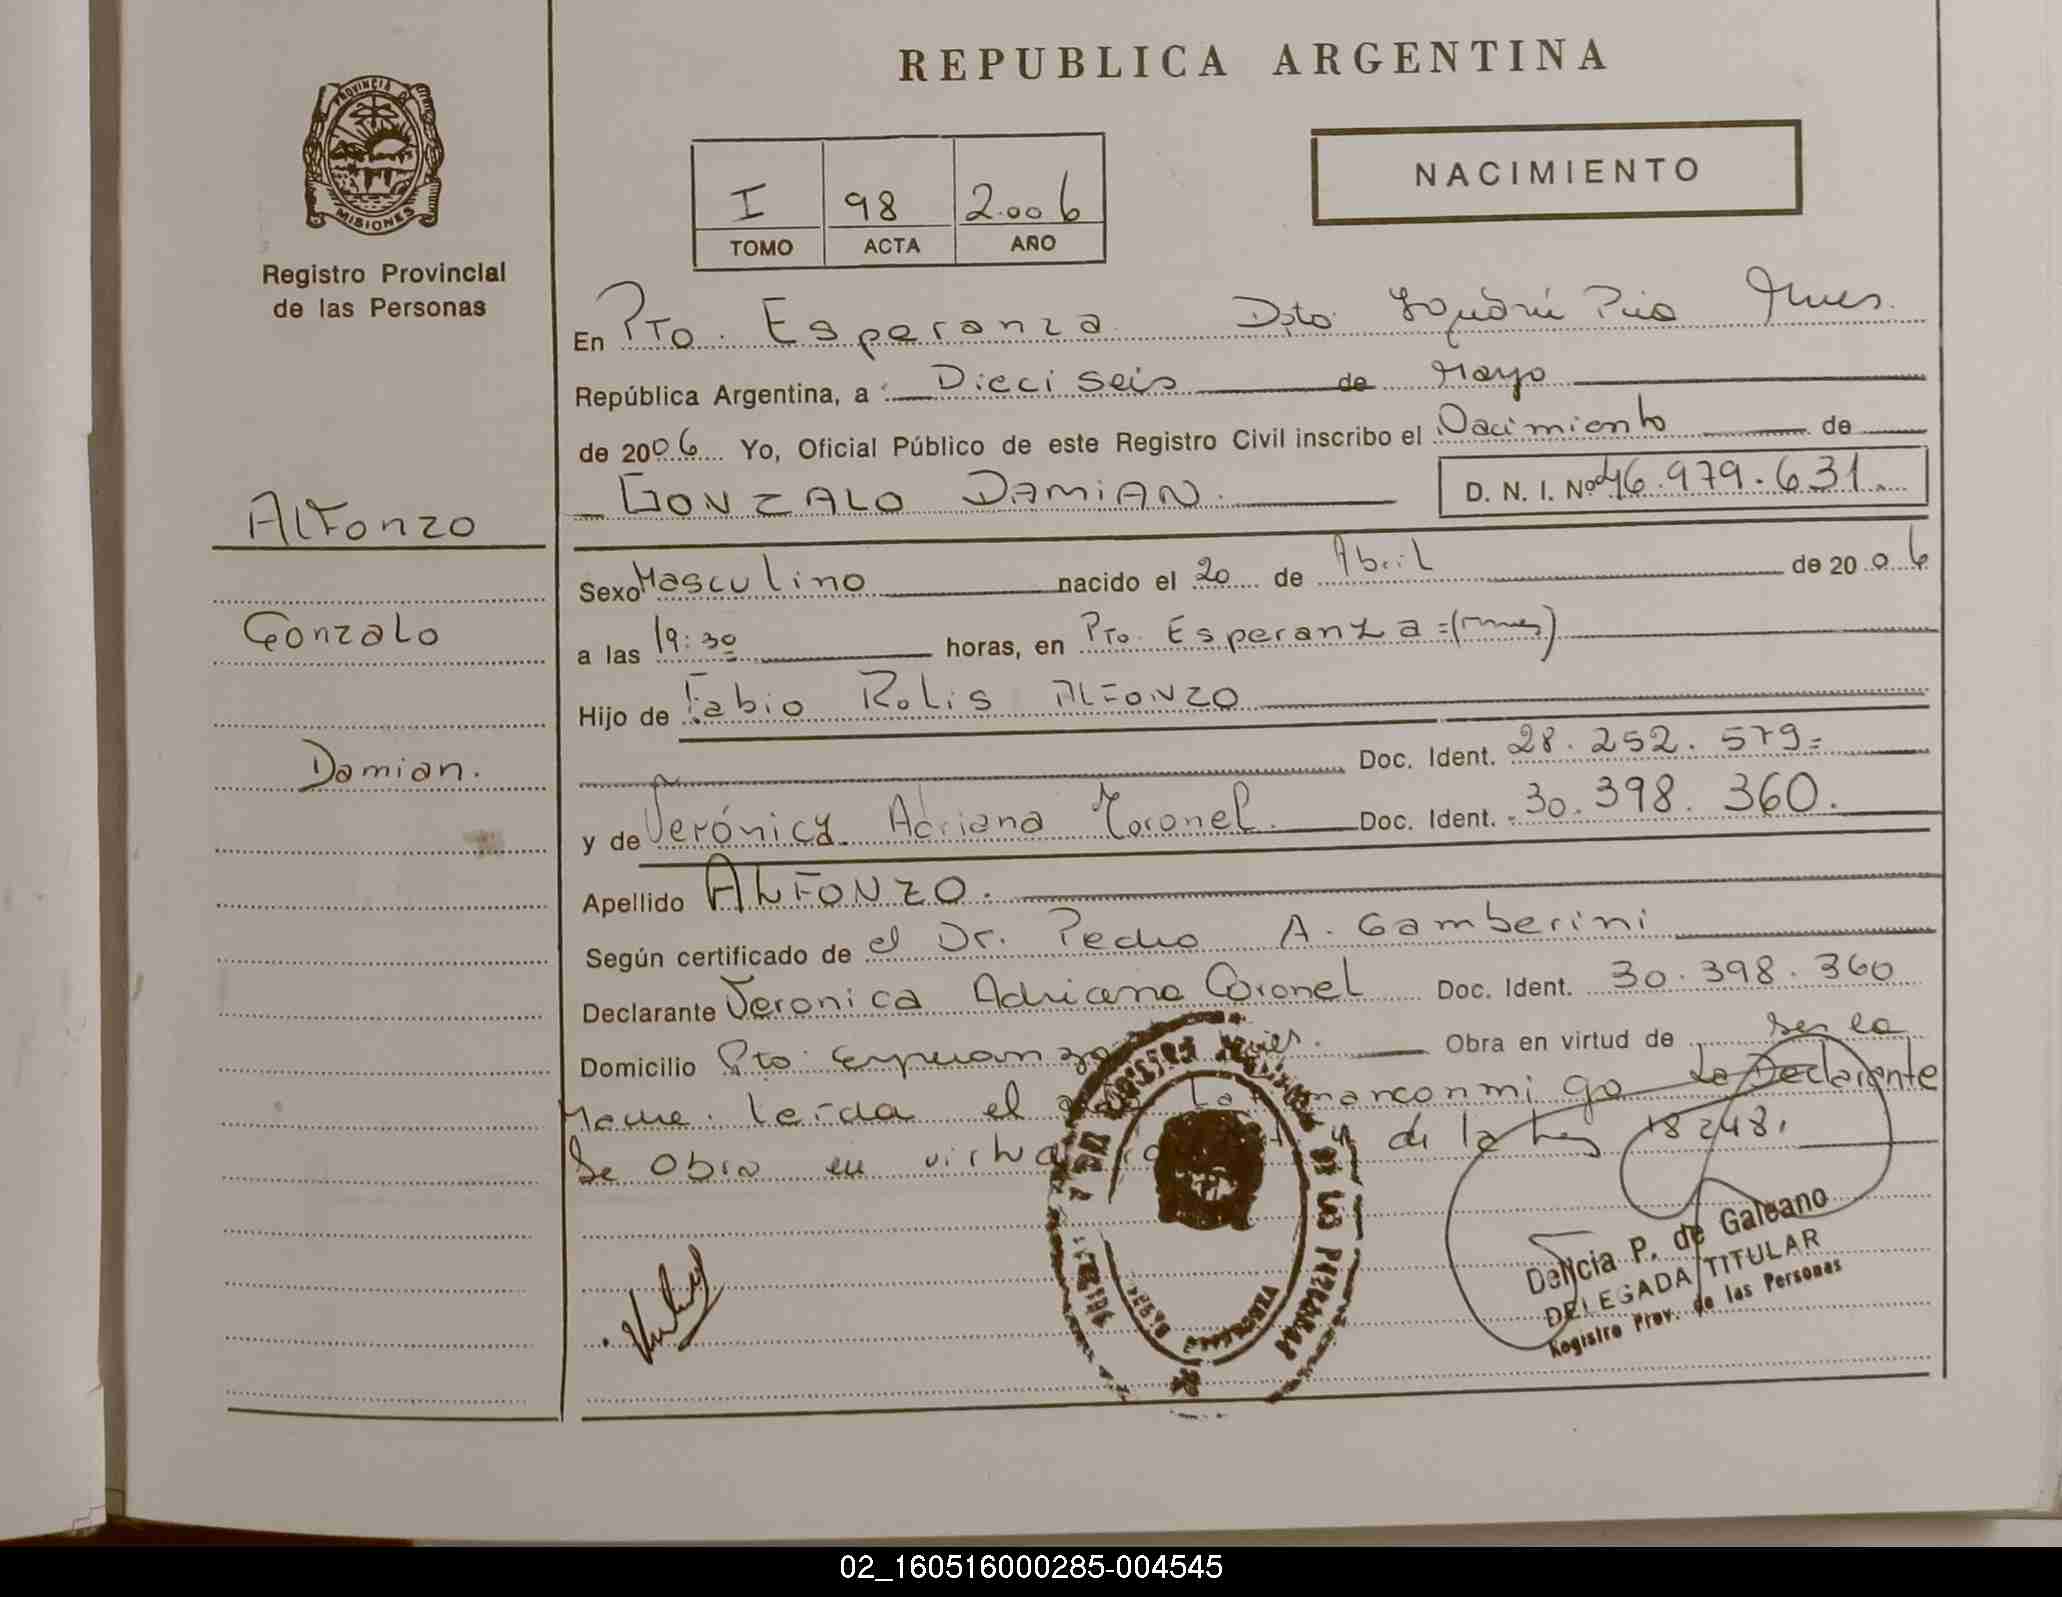 REPUBLICA ARGENTINA
PROVINCIA DE
MISIONES
Registro Provincial
de las Personas
NACIMIENTO
I 98 2.006
TOMO ACTA AÑO
En Pto. Esperanza Dpto.
República Argentina, a Dieciseis de Mayo
de 2006 Yo, Oficial Público de este Registro Civil inscribo el Nacimiento de
GONZALO DAMIAN. D. N. I. Nº 46.979.631
Alfonzo
Gonzalo
Damian.
Sexo Masculino nacido el 20 de Abril de 2006
a las 19:30 horas, en Pto. Esperanza =(Mnes)
Hijo de Fabio Rolis ALFONZO
Doc. Ident. 28.252.579=
y de Verónica Adriana Coronel. Doc. Ident. 30.398.360.
Apellido ALFONZO.
Según certificado de el Dr. Pedro A. Gamberini
Declarante Veronica Adriana Coronel Doc. Ident. 30.398.360
Domicilio Pto. Esperanza Obra en virtud de ser la
Madre. Leída el conmigo La Declarante
Se Obra en de la Ley 18248.
Delicia P. de Galeano
DELEGADA TITULAR
Registro Prov. de las Personas
02_160516000285-004545